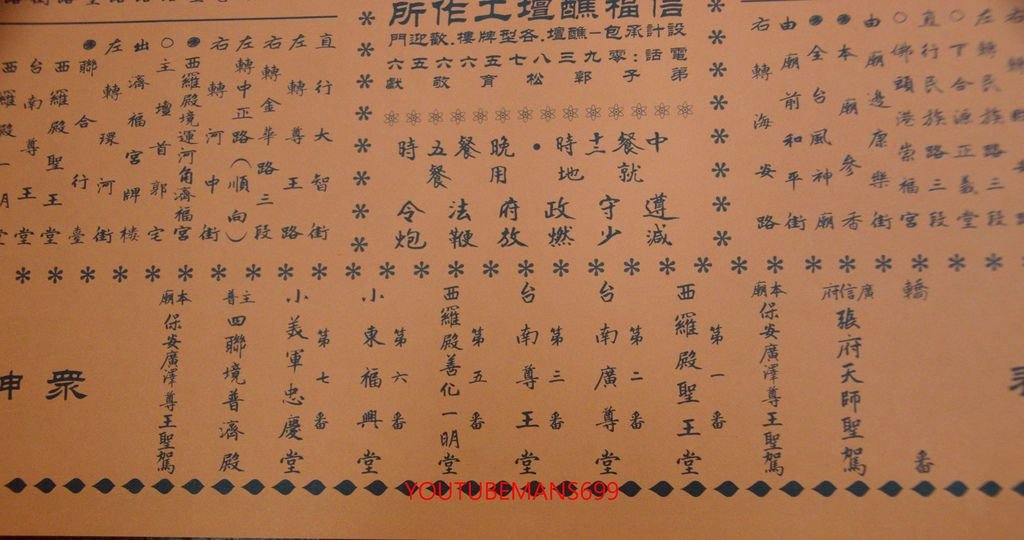 信福醮壇工作所
設計承包一醮壇.各型牌樓.歡迎門
電話：零九三八七五六六五六
弟子郭松育敬獻
中餐十二時•晚餐五時
就地用餐
遵守政府法令
減少燃放鞭炮
右轉民族路三段
左轉民族路三段
下合源正義堂
直行民族路三段
○佛頭港崇福宮
由廟邊康樂街
本廟參香
全台風神廟
由廟前和平街
右轉海安路
直行大智街
左轉尊王路
右轉金華路三段
左轉中正路（順向）
右轉河中街
西羅殿境運河角濟福宮
○主壇首郭宅
出濟福宮牌樓
左轉環河街
聯合行臺
西羅殿聖王堂
台南尊王堂
西羅殿一明堂
轎番
廣信府
張府天師聖駕
本廟
保安廣澤尊王聖駕
第一番
西羅殿聖王堂
第二番
台南廣尊堂
第三番
台南尊王堂
第五番
西羅殿善化一明堂
第六番
小東福興堂
第七番
小義軍忠慶堂
主普
四聯境普濟殿
本廟
保安廣澤尊王聖駕
眾神
YOUTUBEMANS699